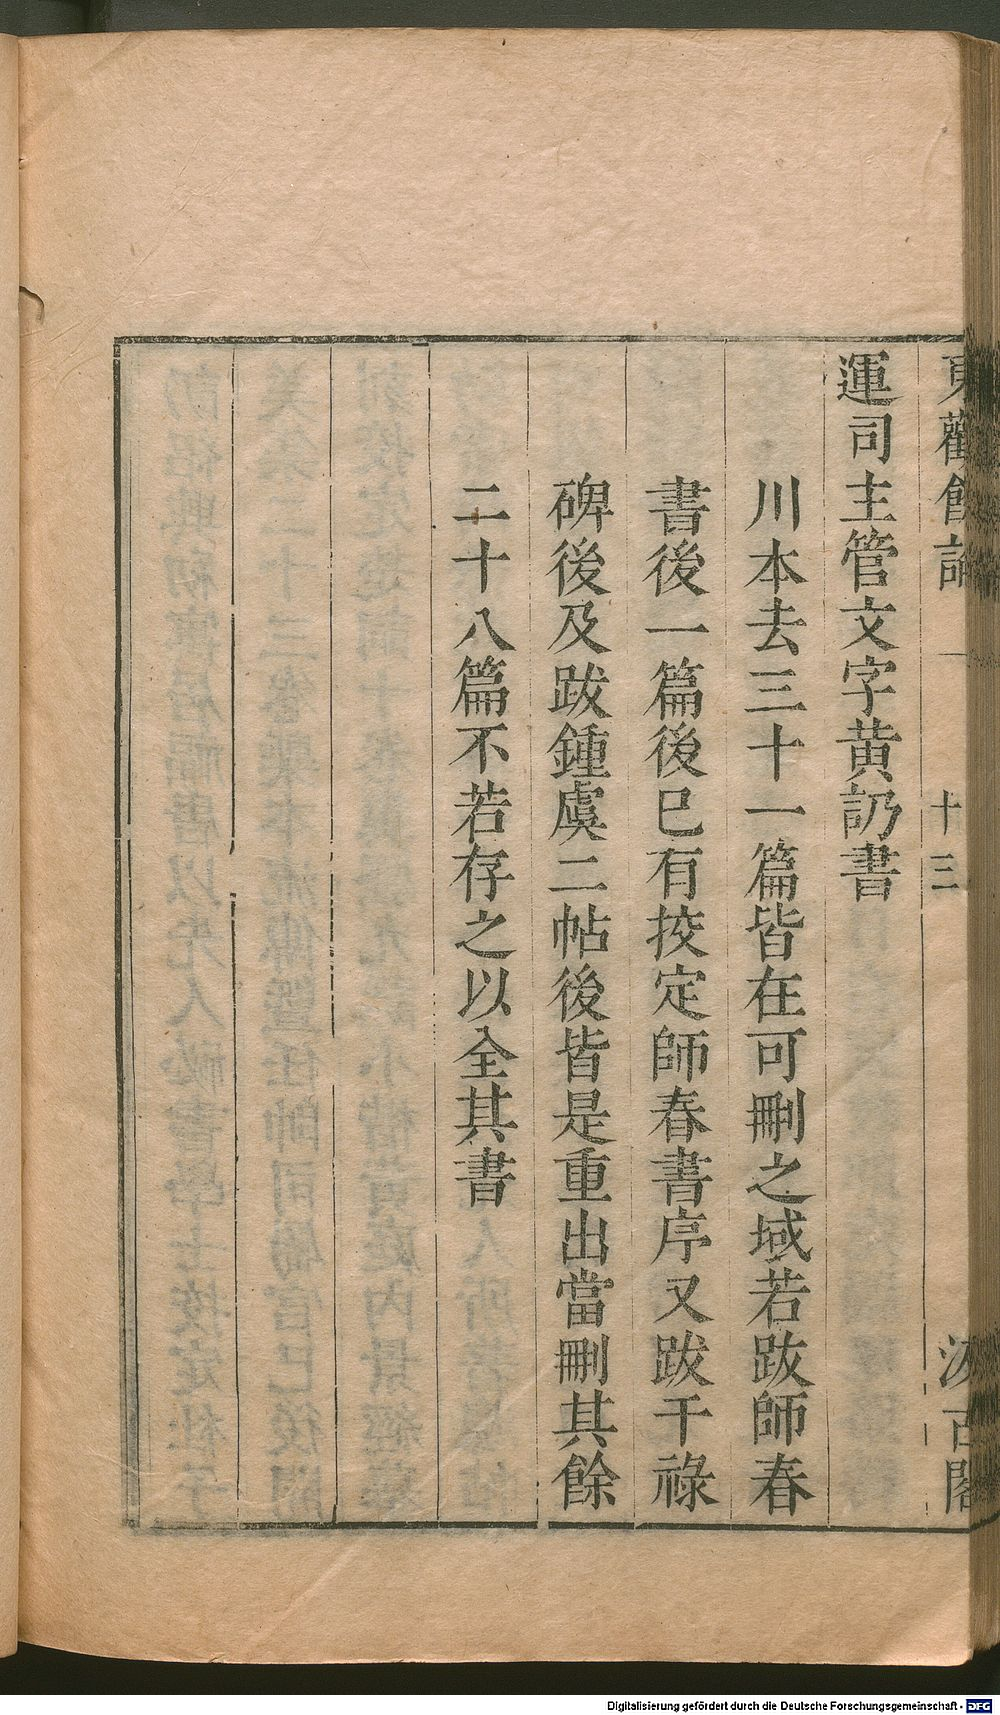 東觀餘論 一 十三 汲古閣
運司主管文字黄訒書
川本去三十一篇皆在可刪之域若跋師春
書後一篇後已有挍定師春書序又跋干祿
碑後及跋鍾虞二帖後皆是重出當刪其餘
二十八篇不若存之以全其書
Digitalisierung gefördert durch die Deutsche Forschungsgemeinschaft - DFG